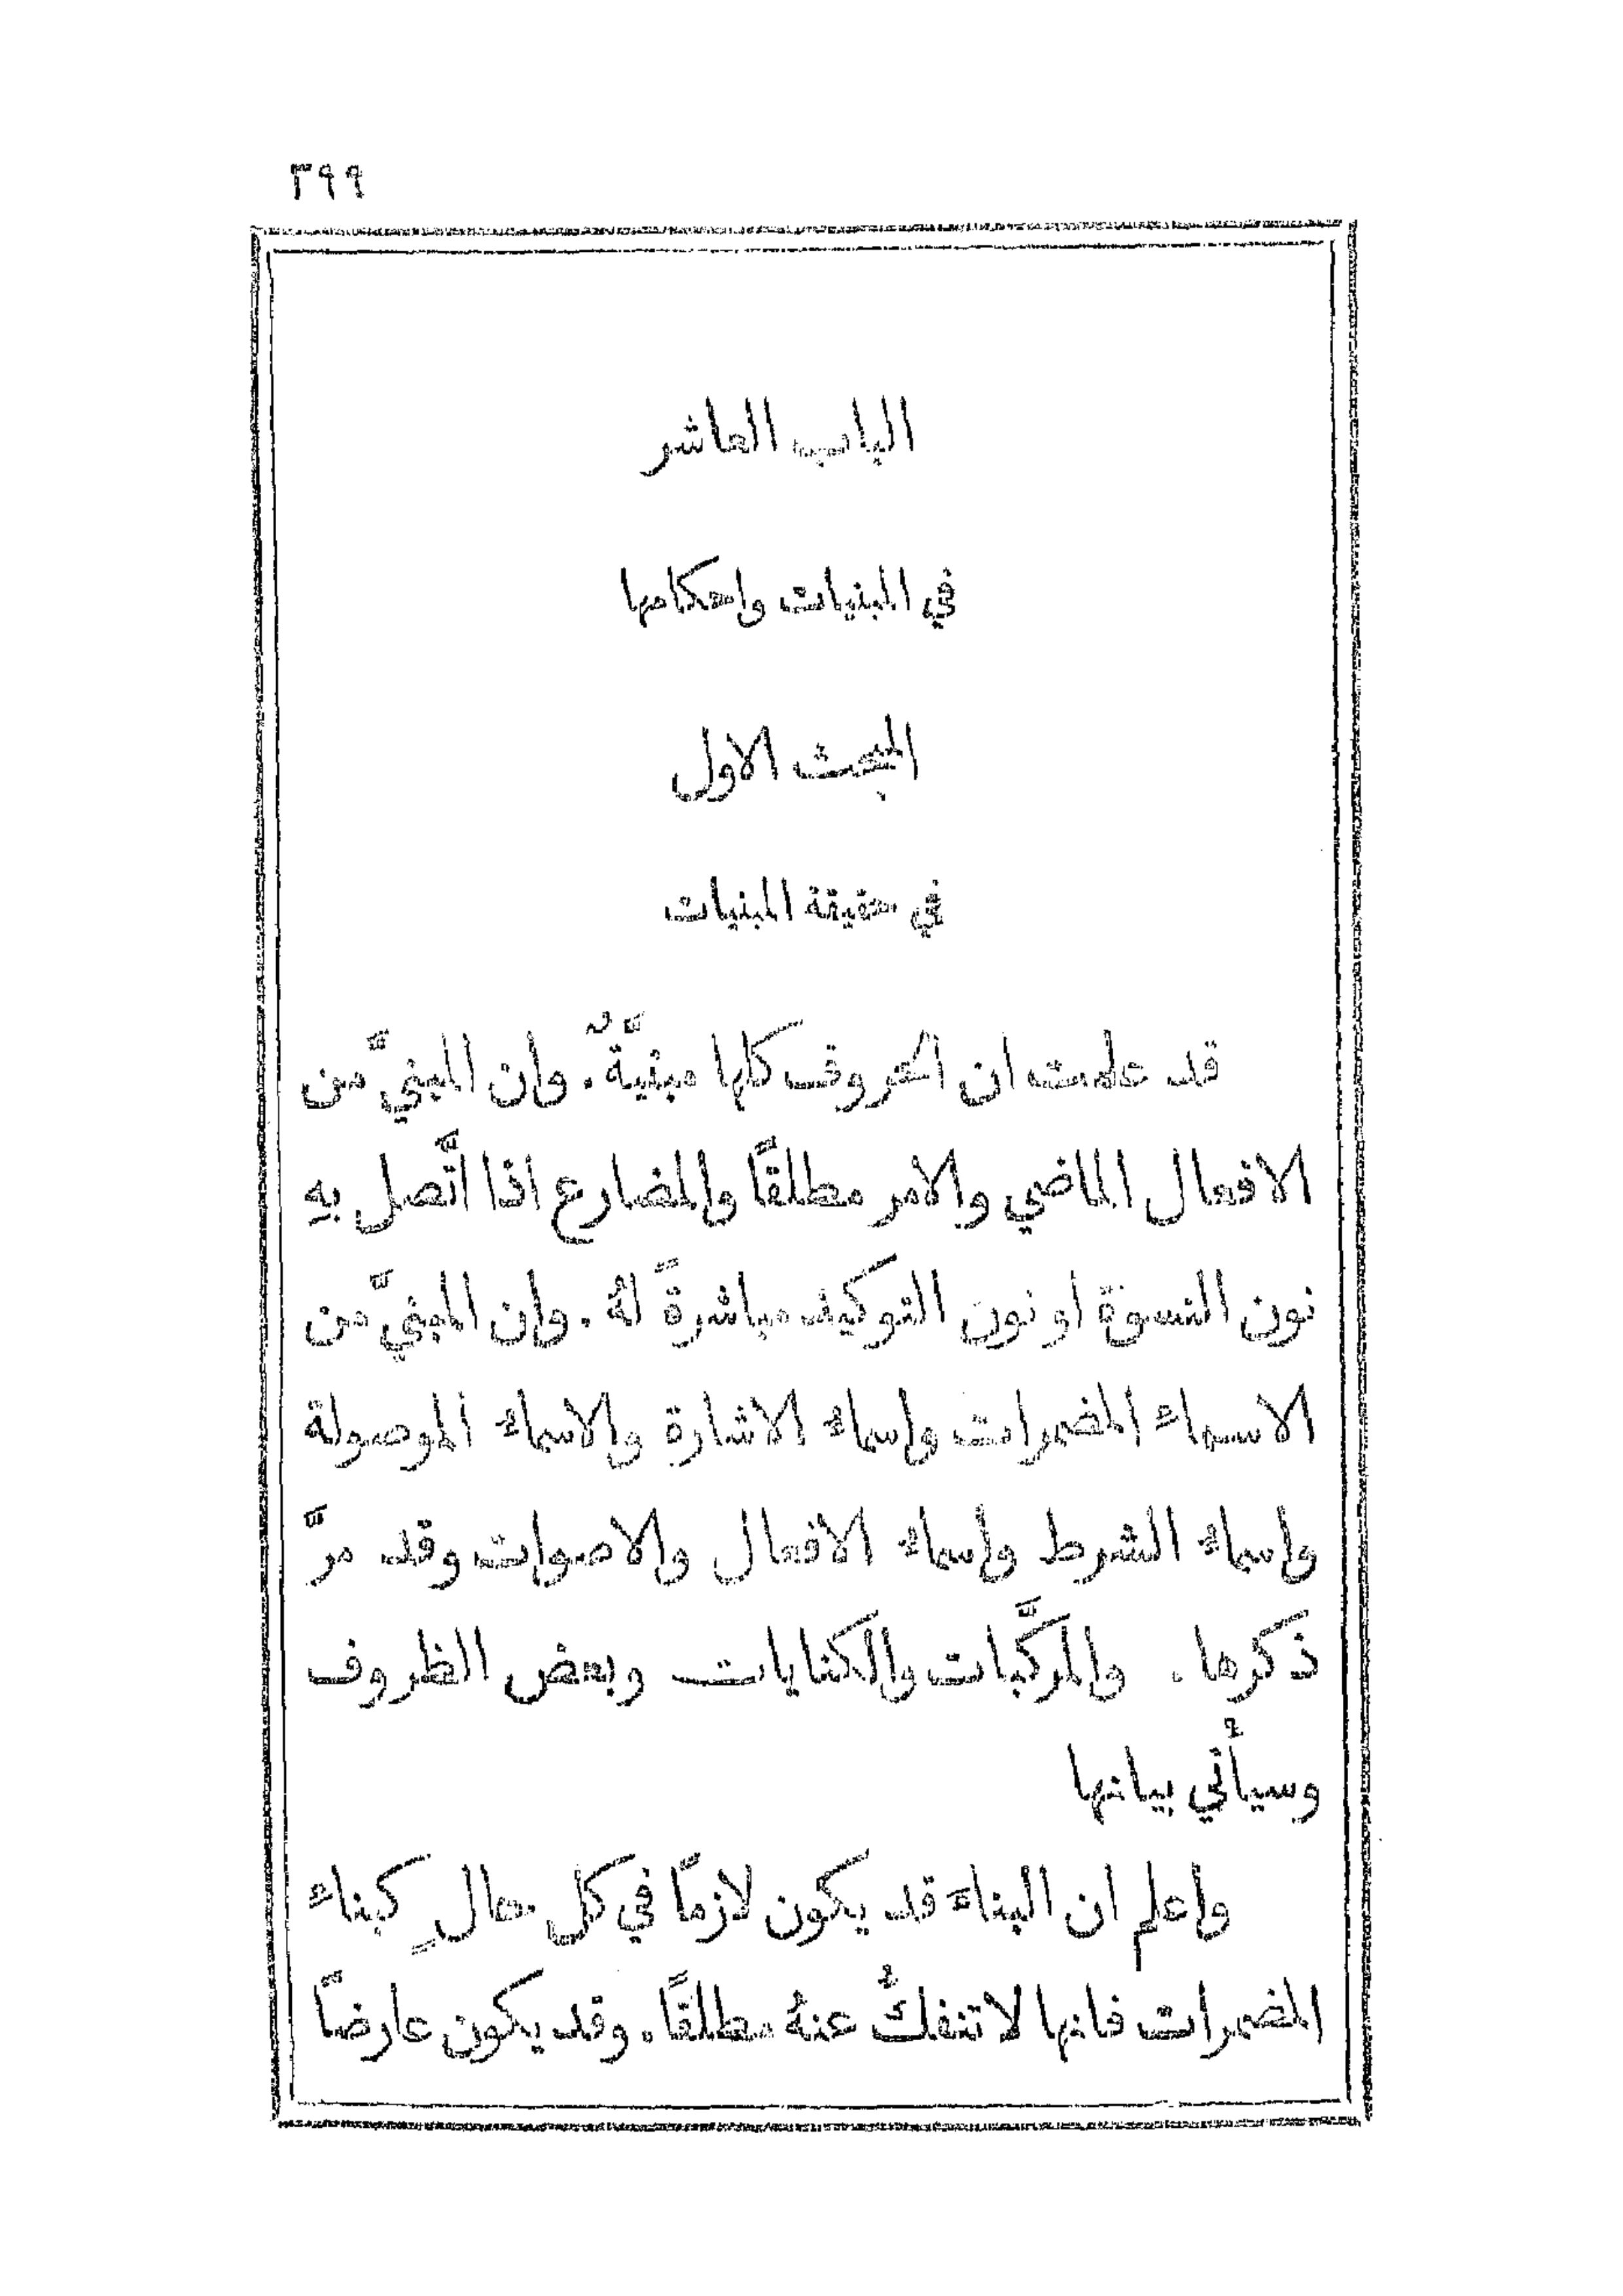 ٣٩٩
الباب العاشر
في المبنيات واحكامها
المبحث الاول
في حقيقة المبنيات
قد علمت ان الحروف كلها مبنيَّةٌ. وان المبنيَّ من
الافعال الماضي والامر مطلقًا والمضارع اذا اتَّصل بهِ
نون النسوة او نون التوكيد مباشرةً لهُ. وان المبنيَّ من
الاسماء المضمرات واسماء الاشارة والاسماء الموصولة
واسماء الشرط واسماء الافعال والاصوات وقد مرَّ
ذكرها. والمركَّبات والكنايات وبعض الظروف
وسيأْتي بيانها
واعلم ان البناءَ قد يكون لازمًا في كل حالٍ كبناء
المضمرات فانها لا تنفكُّ عنهُ مطلقًا. وقد يكون عارضًا